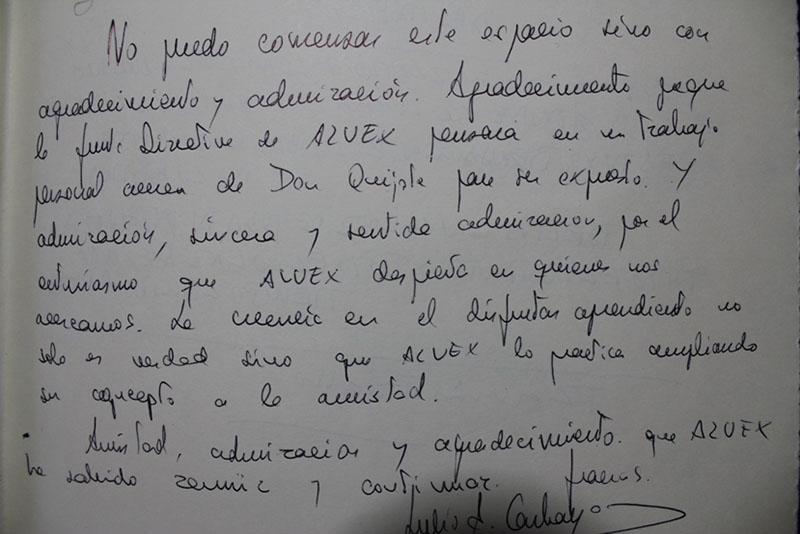 No puedo comenzar este espacio sino con
agradecimiento y admiración. Agradecimiento porque
la Junta Directiva de AZUEX pensara en un trabajo
personal acerca de Don Quijote para ser expuesto. Y
admiración, sincera y sentida admiración, por el
entusiasmo que AZUEX despierta en quienes nos
acercamos. La creencia en el disfrutar aprendiendo no
solo es verdad sino que AZUEX lo practica ampliando
su concepto a la amistad.
Amistad, admiración y agradecimiento. que AZUEX
ha sabido reunir y
Gracias.